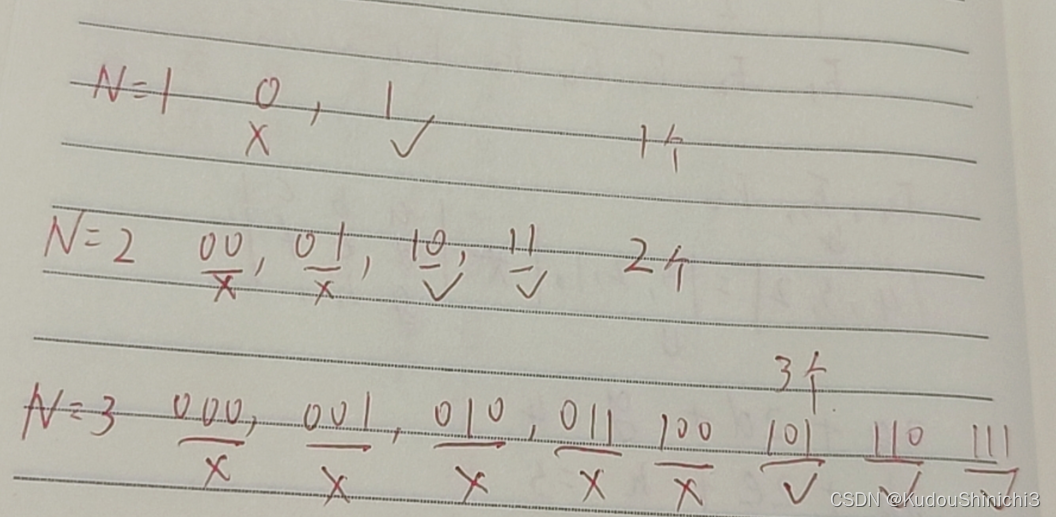 N=1 0, 1 1个
x ✓
N=2 00, 01, 10, 11 2个
x x ✓ ✓
3个
N=3 000, 001, 010, 011 100 101 110 111
x x x x x ✓ ✓ ✓
CSDN @KudouShinichi3